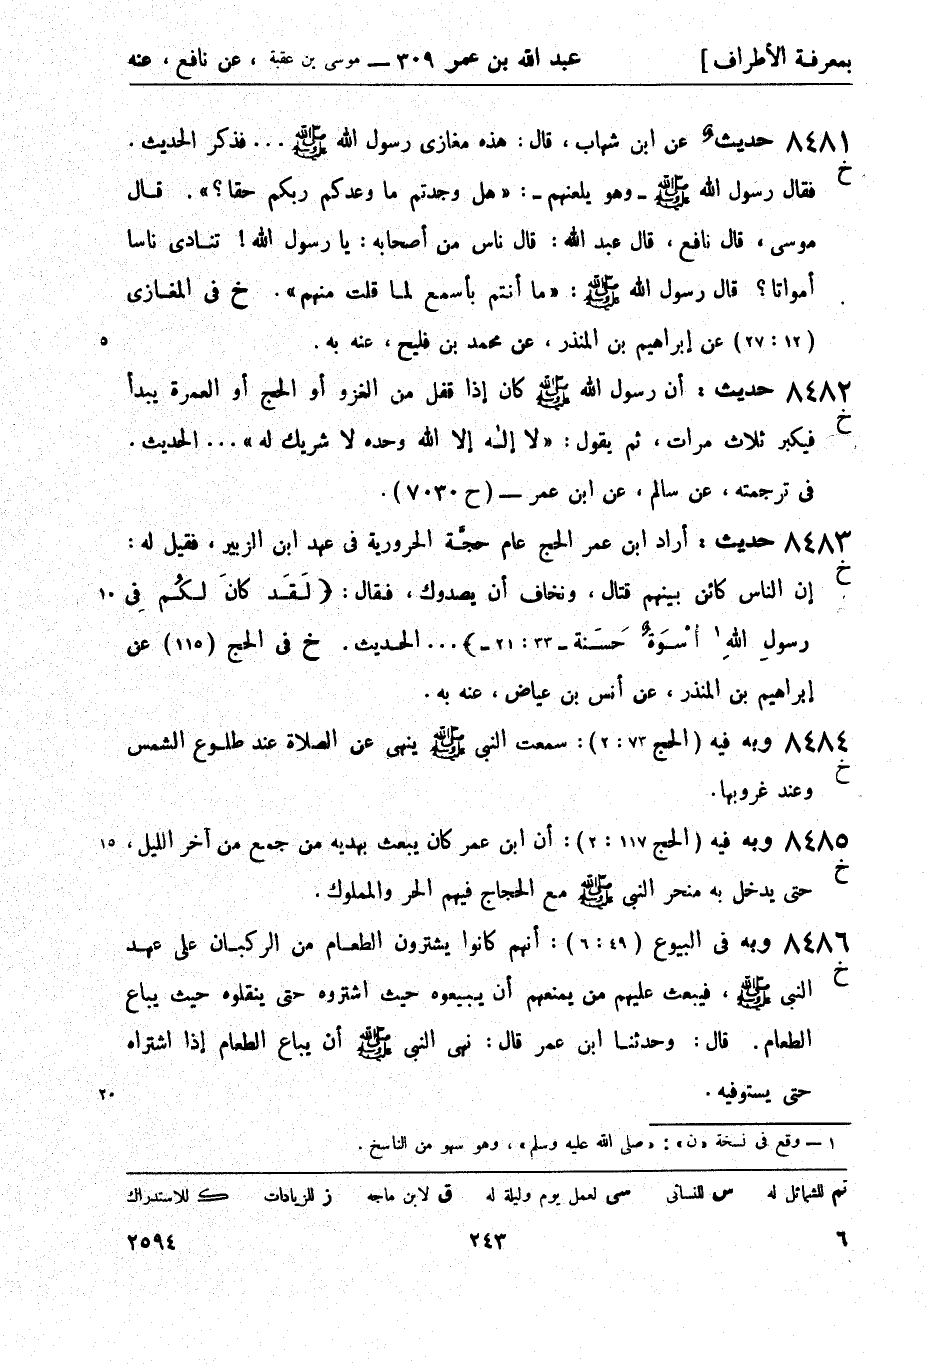 بمعرفة الأطراف ] عبد الله بن عمر ٣٠٩ — موسى بن عقبة ، عن نافع ، عنه
٨٤٨١ حديث عن ابن شهاب ، قال : هذه مغازى رسول الله ﷺ ... فذكر الحديث .
خ
فقال رسول الله ﷺ ـ وهو يلعنهم ـ : « هل وجدتم ما وعدكم ربكم حقا ؟ » . قال
موسى ، قال نافع ، قال عبد الله : قال ناس من أصحابه : يا رسول الله ! تنادى ناسا
أمواتا ؟ قال رسول الله ﷺ : « ما أنتم بأسمع لما قلت منهم » . خ فى المغازى
(١٢ : ٢٧) عن إبراهيم بن المنذر ، عن محمد بن فليح ، عنه به . ٥
٨٤٨٢ حديث : أن رسول الله ﷺ كان إذا قفل من الغزو أو الحج أو العمرة يبدأ
خ
فيكبر ثلاث مرات ، ثم يقول : « لا إلٰه إلا الله وحده لا شريك له » ... الحديث .
فى ترجمته ، عن سالم ، عن ابن عمر — (ح ٧٠٣٠) .
٨٤٨٣ حديث : أراد ابن عمر الحج عام حجَّة الحرورية فى عهد ابن الزبير ، فقيل له :
خ
إن الناس كائن بينهم قتال ، ونخاف أن يصدوك ، فقال : ﴿ لَقَد كانَ لكُم فِى ١٠
رسولِ اللهِ ١ أسوَةٌ حَسَنة ـ ٣٣ : ٢١ ـ ﴾ ... الحديث . خ فى الحج (١١٥) عن
إبراهيم بن المنذر ، عن أنس بن عياض ، عنه به .
٨٤٨٤ وبه فيه (الحج ٧٣ : ٢) : سمعت النبى ﷺ ينهى عن الصلاة عند طلوع الشمس
خ
وعند غروبها .
٨٤٨٥ وبه فيه (الحج ١١٧ : ٢) : أن ابن عمر كان يبعث بهديه من جمع من آخر الليل ، ١٥
خ
حتى يدخل به منحر النبى ﷺ مع الحجاج فيهم الحر والمملوك .
٨٤٨٦ وبه فى البيوع (٤٩ : ٦) : أنهم كانوا يشترون الطعام من الركبان على عهد
خ
النبى ﷺ ، فيبعث عليهم من يمنعهم أن يبيعوه حيث اشتروه حتى ينقلوه حيث يباع
الطعام . قال : وحدثنا ابن عمر قال : نهى النبى ﷺ أن يباع الطعام إذا اشتراه
حتى يستوفيه . ٢٠
١ — وقع فى نسخة «ن» : «صلى الله عليه وسلم» ، وهو سهو من الناسخ .
تم للشمائل له س للنسائى سى لعمل يوم وليلة له ق لابن ماجه ز للزيادات ك للاستدراك
٦ ٢٤٣ ٢٥٩٤